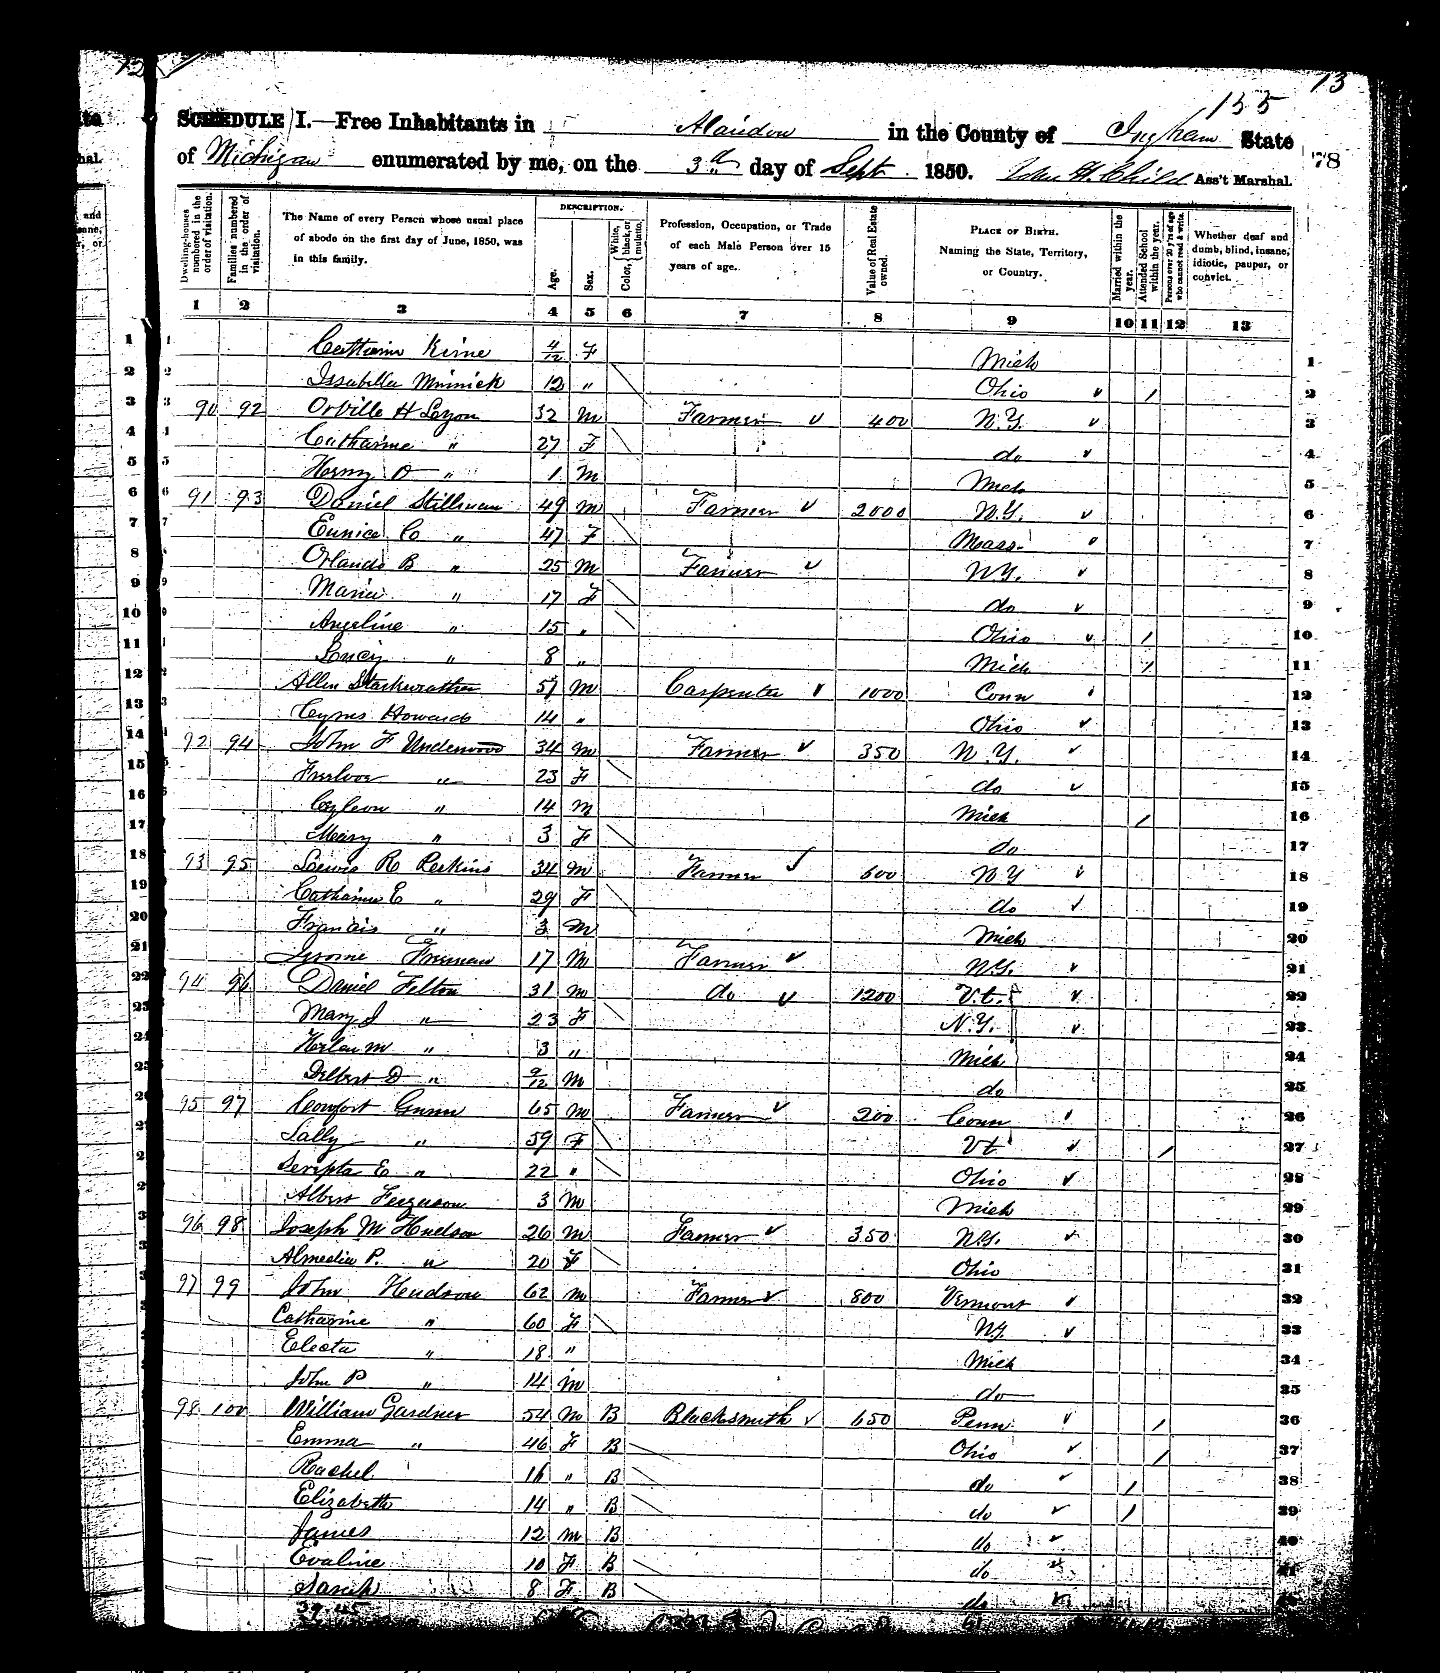 13
155
SCHEDULE I.—Free Inhabitants in Alaiedon in the County of Ingham State
78
of Michigan enumerated by me, on the 3d day of Sept 1850. Ass't Marshal.
Dwelling-houses numbered in the order of visitation.
Families numbered in the order of visitation.
The Name of every Person whose usual place of abode on the first day of June, 1850, was in this family.
DESCRIPTION.
Age.
Sex.
Color, White, black, or mulatto.
Profession, Occupation, or Trade of each Male Person over 15 years of age.
Value of Real Estate owned.
PLACE OF BIRTH. Naming the State, Territory, or Country.
Married within the year.
Attended School within the year.
Persons over 20 y'rs of age who cannot read & write.
Whether deaf and dumb, blind, insane, idiotic, pauper, or convict.
1 2 3 4 5 6 7 8 9 10 11 12 13
1 Catharine Kime 4/12 F Mich 1
2 Issabella Minnick 12 " Ohio 1 2
3 90 92 Orville H Lyon 32 M Farmer 400 N.Y. 3
4 Catharine " 27 F do 4
5 Henry O " 1 M Mich 5
6 91 93 Daniel Stillman 49 M Farmer 2000 N.Y. 6
7 Eunice C " 47 F Mass. 7
8 Orlando B " 25 M Farmer NY. 8
9 Maria " 17 F do 9
10 Angeline " 15 " Ohio 1 10
11 Lucy " 8 " Mich 1 11
12 Allen Starkweather 57 M Carpenter 1000 Conn 12
13 Cyrus Howard 14 " Ohio 13
14 92 94 John F Underwood 34 M Farmer 350 N.Y. 14
15 " 23 F do 15
16 " 14 M Mich 1 16
17 Mary " 3 F do 17
18 93 95 Lewis R Perkins 34 M Farmer 600 N.Y 18
19 Catharine E " 29 F do 19
20 Francis " 3 M Mich 20
21 Jerome Freeman 17 M Farmer N.Y. 21
22 94 96 Daniel Felton 31 M do 1200 V.t. 22
23 Mary J " 23 F N.Y. 23
24 M " 3 " Mich 24
25 Delbert D " 9/12 M do 25
26 95 97 Comfort Gunn 65 M Farmer 200 Conn 26
27 Sally " 59 F Vt 1 27
28 Scripta E " 22 " Ohio 28
29 Albert Ferguson 3 M Mich 29
30 96 98 Joseph M Hudson 26 M Farmer 350 N.Y. 30
31 Almedia P. " 20 F Ohio 31
32 97 99 John Hudson 62 M Farmer 800 Vermont 32
33 Catharine " 60 F N.Y. 33
34 Electa " 18 " Mich 34
35 John P " 14 M do 35
98 100 William Gardner 54 M B Blacksmith 650 Penn 1 36
Emma " 46 F B Ohio 1 37
Rachel 16 " B do 1 38
Elizabeth 14 " B do 1 39
James 12 M B do 40
Evaline 10 F B do 41
Sarah 8 F B do